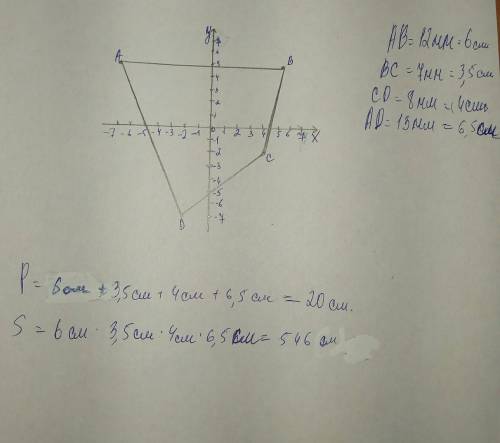 AB=12мм=6см
BC=7мм=3,5см
CD=8мм=4см
AD=13мм=6,5см
y
A
B
5
4
3
2
1
-7 -6 -5 -4 -3 -2 -1 0 1 2 3 4 5 6 7 8 X
-1
-2
C
-3
-4
-5
-6
D
-7
P= 6см + 3,5см + 4см + 6,5см = 20см.
S = 6см · 3,5см · 4см · 6,5см = 546 см